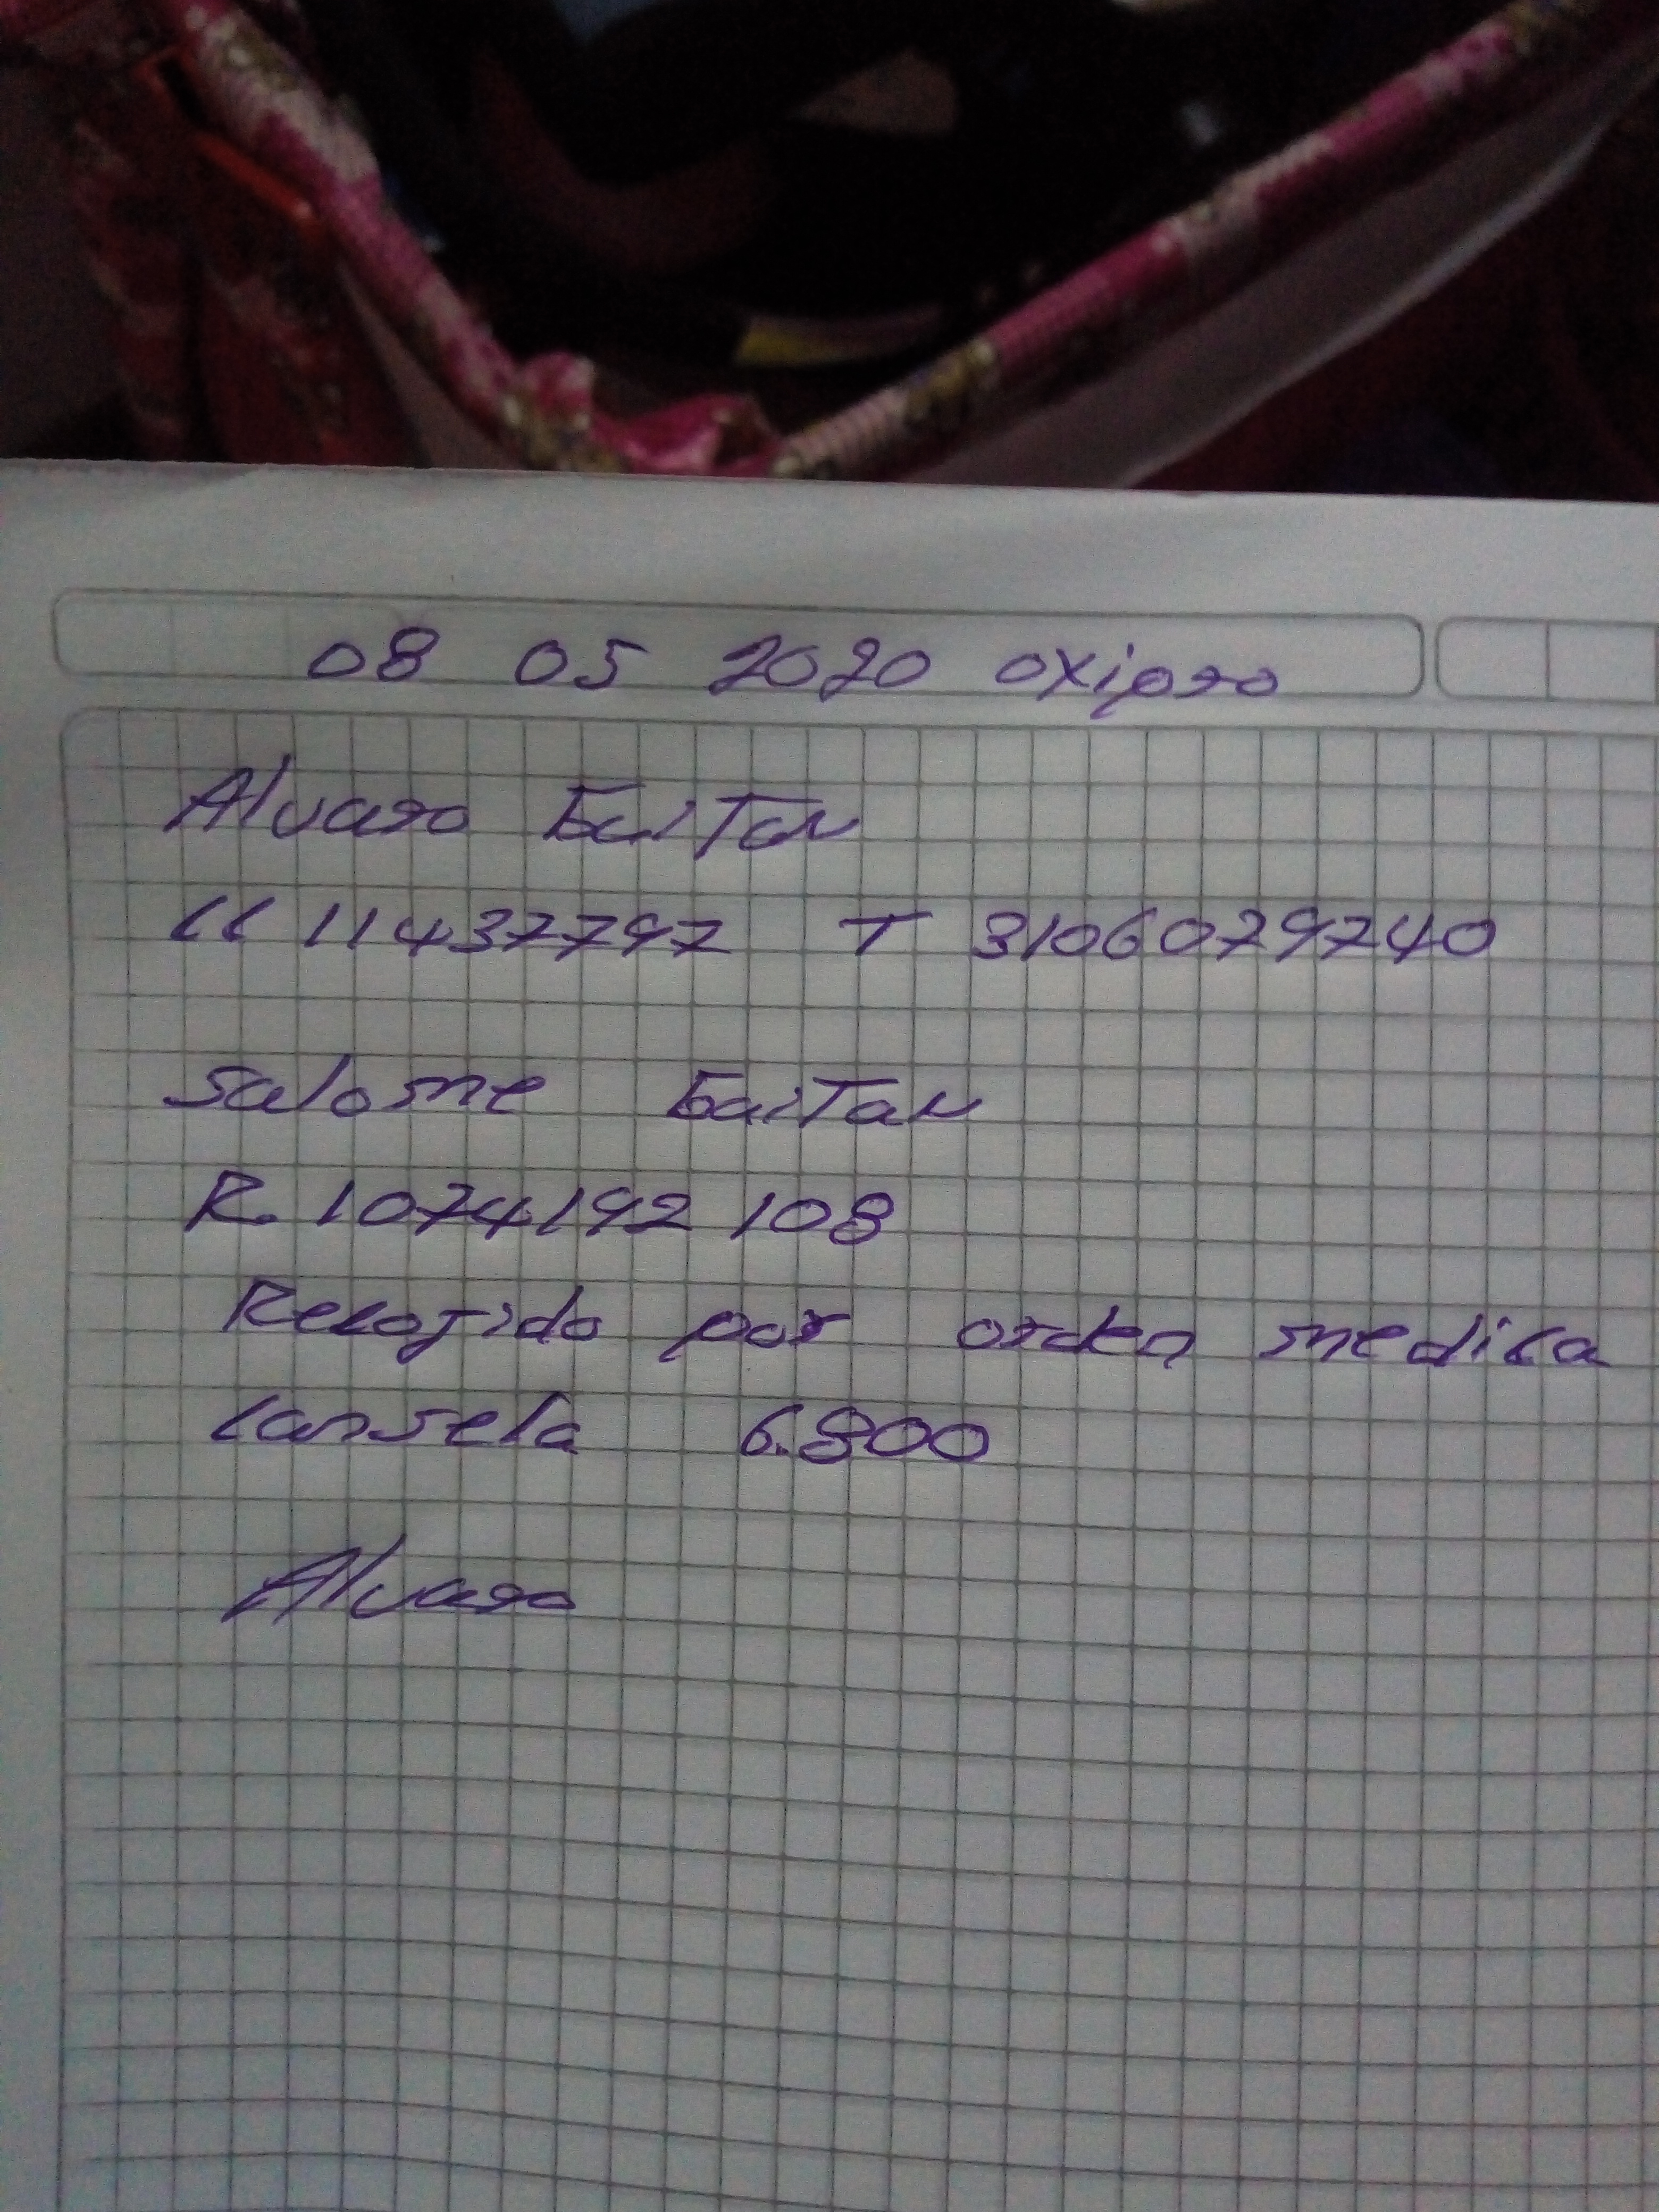 08 05 2020 oxipro
Alvaro Gaitan
CC 11437797 T 3106079740
Salome Gaitan
R. 1074192108
Recojido por orden medica
Cansela 6.800
Alvaro